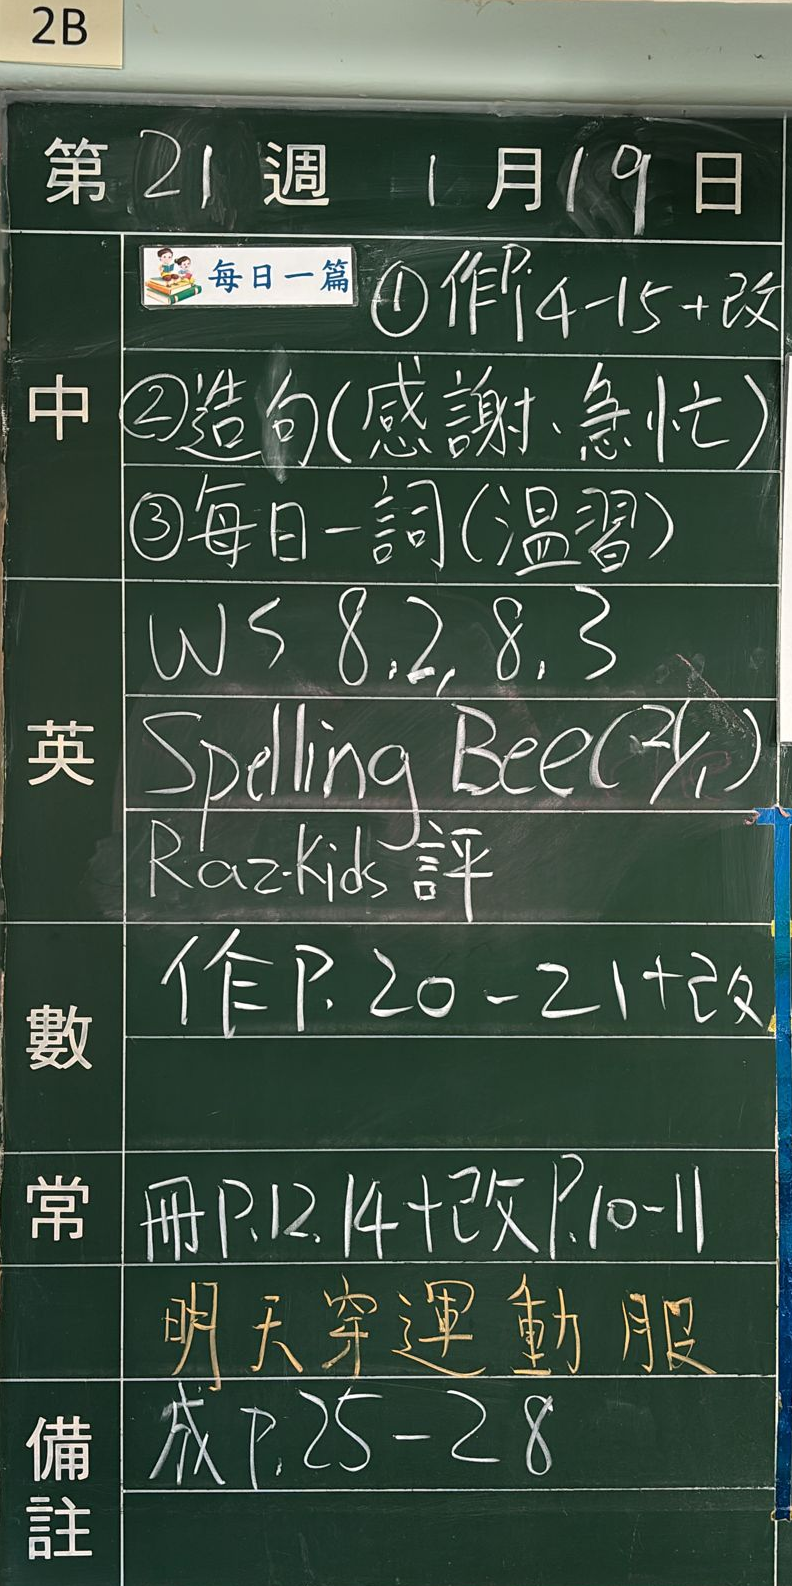 2B
第 21 週 1 月 19 日
中
每日一篇 ①作P.14-15+改
②造句(感謝、急忙)
③每日一詞(溫習)
英
WS 8.2, 8.3
Spelling Bee(21/1)
Raz-Kids 評
數
作P. 20-21+改
常
冊P.12, 14+改P.10-11
明天穿運動服
備註
成P.25-28